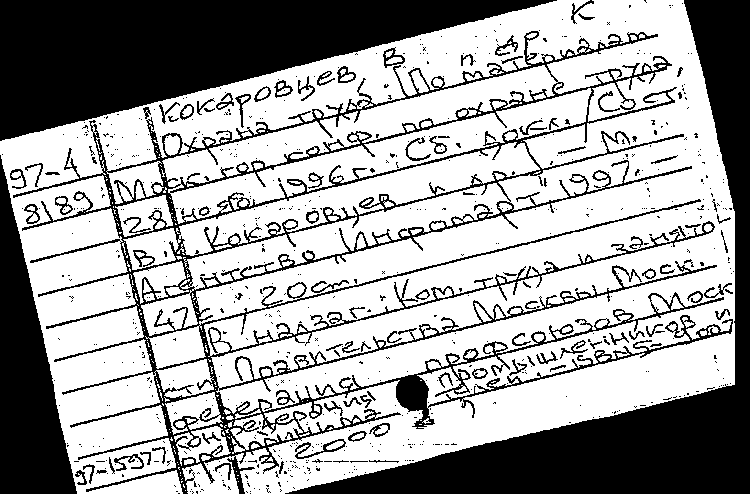 К
Кокаровцев, В и др.
Охрана труда: [По материалам
97-4
8189
Моск. гор. конф. по охране труда,
28 нояб. 1996 г.: Сб. докл. / Сост.
В.К. Кокаровцев и др.]. – М.:
Агентство "Инфомарт", 1997. –
47 с.; 20 см.
В надзаг.: Ком. труда и занято
сти Правительства Москвы, Моск.
федерация профсоюзов, Моск
конфедерация промышленников и
предпринима телей. – ISBN 5-
97-15977
17-3, 2000